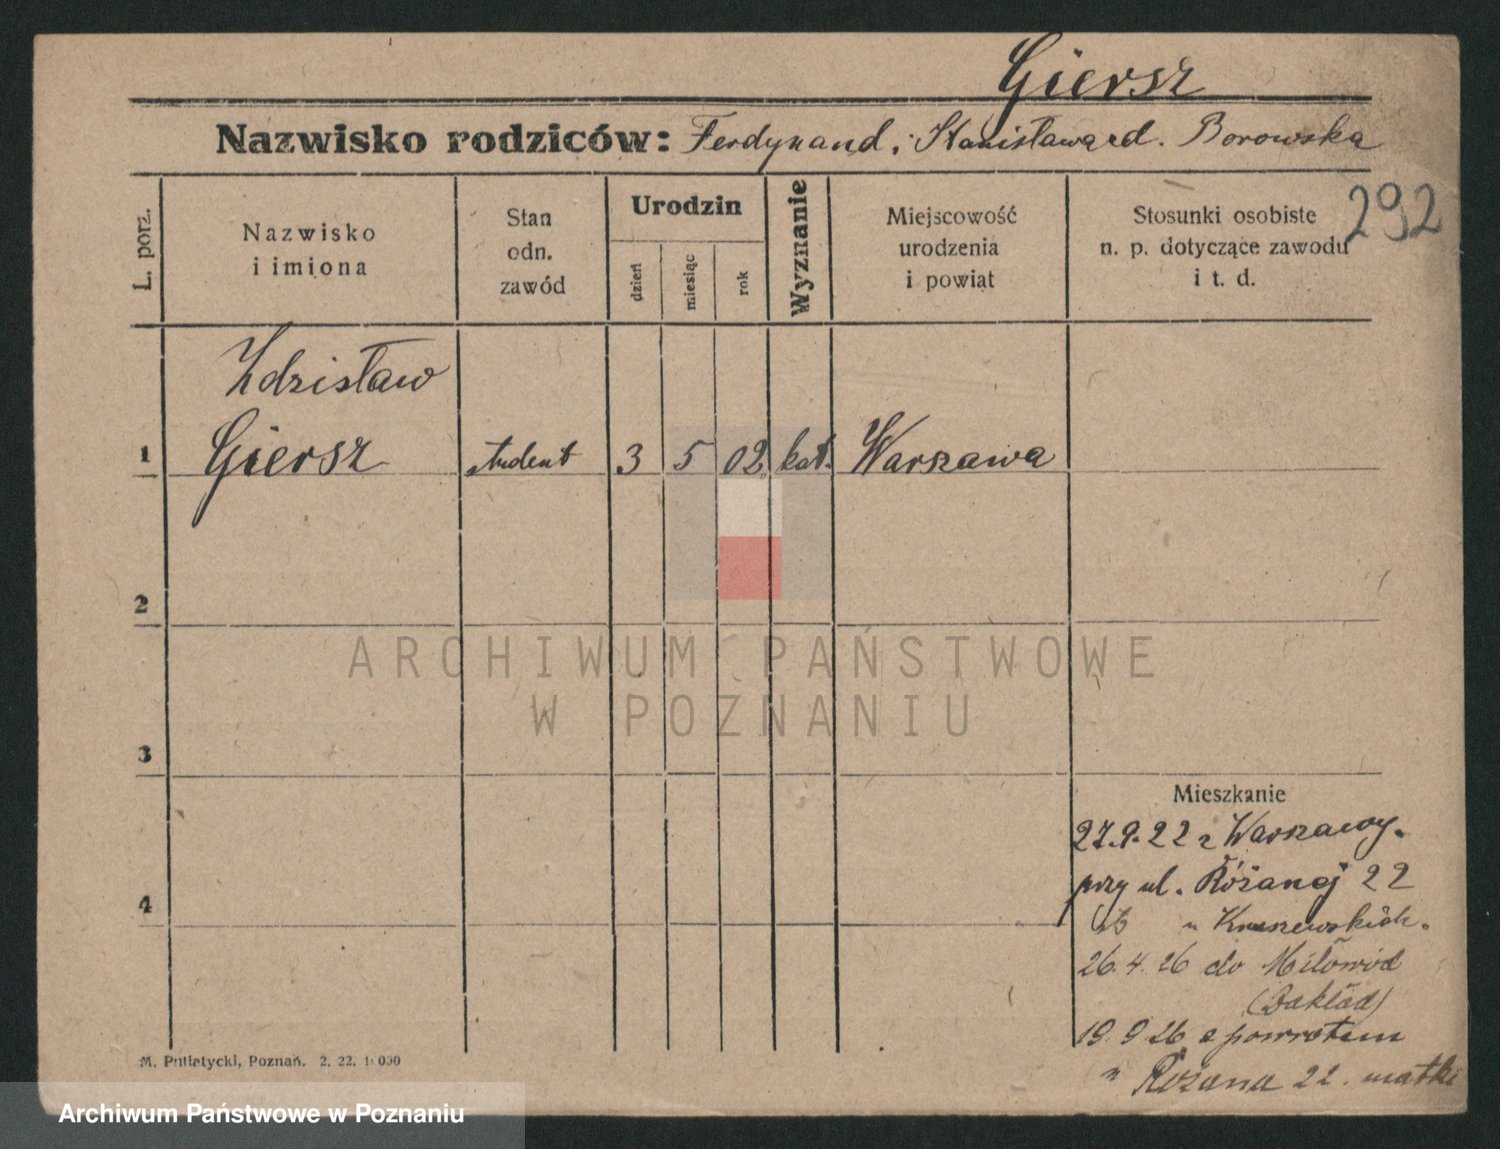 Giersz
Nazwisko rodziców: Ferdynand, Stanisława z d. Borowska
292
L. porz.
Nazwisko
i imiona
Stan
odn.
zawód
Urodzin
dzień
miesiąc
rok
Wyznanie
Miejscowość
urodzenia
i powiat
Stosunki osobiste
n. p. dotyczące zawodu
i t. d.
Zdzisław
1 Giersz student 3 5 02 kat. Warszawa
2
ARCHIWUM PAŃSTWOWE
W POZNANIU
3
Mieszkanie
27.9.22 z Warszawy.
przy ul. Różanej 22
4
u Kraszewskich.
26.4.26 do Miłowód
(Zakład)
19.9.26 z powrotem
" Różana 22. matki
M. Putiatycki, Poznań. 2. 22. 10000
Archiwum Państwowe w Poznaniu